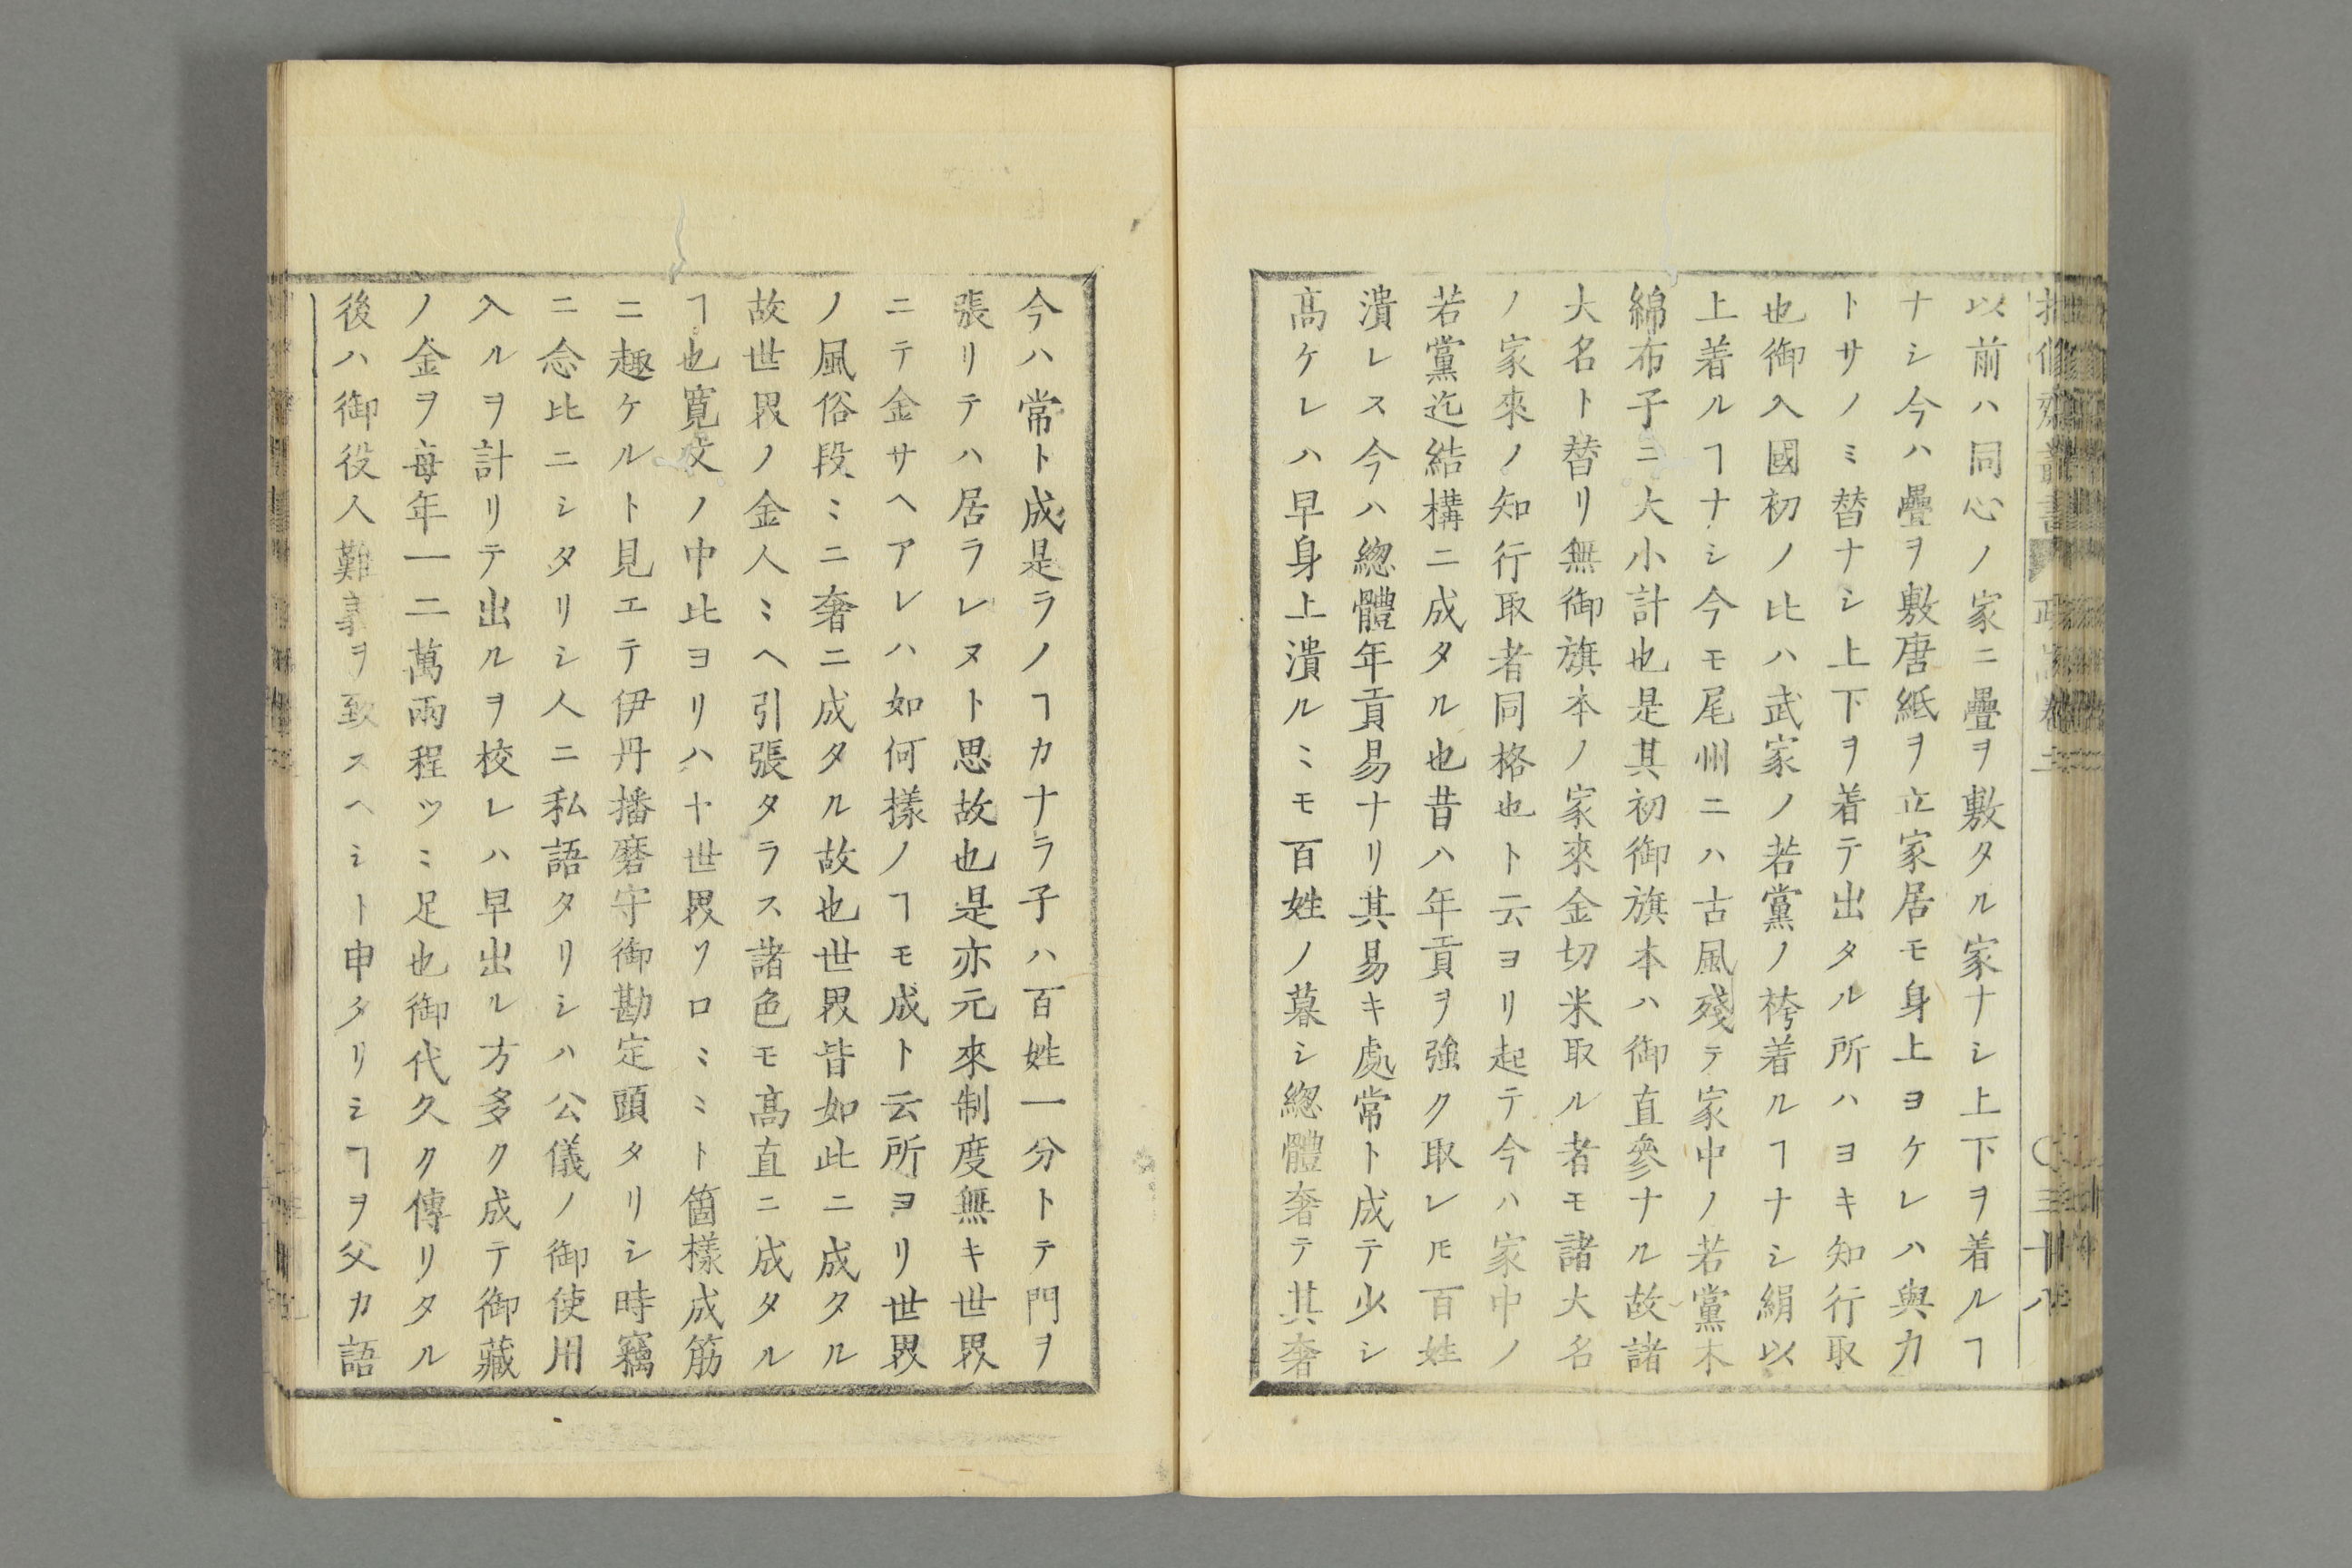 以前ハ同心ノ家ニ疊ヲ敷タル家ナシ上下ヲ着ルヿ
ナシ今ハ疊ヲ敷唐紙ヲ立家居モ身上ヨケレハ與力
トサノミ替ナシ上下ヲ着テ出タル所ハヨキ知行取
也御入國初ノ比ハ武家ノ若黨ノ袴着ルヿナシ絹以
上着ルヿナシ今モ尾州ニハ古風殘テ家中ノ若黨木
綿布子ニ大小計也是其初御旗本ハ御直參ナル故諸
大名ト替リ無御旗本ノ家來金切米取ル者モ諸大名
ノ家來ノ知行取者同格也ト云ヨリ起テ今ハ家中ノ
若黨迄結構ニ成タル也昔ハ年貢ヲ強ク取レ𪜈百姓
潰レス今ハ總體年貢易ナリ其易キ處常ト成テ少シ
髙ケレハ早身上潰ルミモ百姓ノ暮シ總體奢テ其奢
今ハ常ト成是ラノヿカナラ子ハ百姓一分トテ門ヲ
張リテハ居ラレヌト思故也是亦元來制度無キ世界
ニテ金サヘアレハ如何樣ノヿモ成ト云所ヨリ世界
ノ風俗段ミニ奢ニ成タル故也世界皆如此ニ成タル
故世界ノ金人ミヘ引張タラス諸色モ髙直ニ成タル
ヿ也寛文ノ中比ヨリハヤ世界ワロミミト箇樣成筋
ニ趣ケルト見エテ伊丹播磨守御勘定頭タリシ時竊
ニ念比ニシタリシ人ニ私語タリシハ公儀ノ御使用
入ルヲ計リテ出ルヲ校レハ早出ル方多ク成テ御藏
ノ金ヲ毎年一二萬兩程ツミ足也御代久ク傳リタル
後ハ御役人難義ヲ致スヘシト申タリシヿヲ父カ語